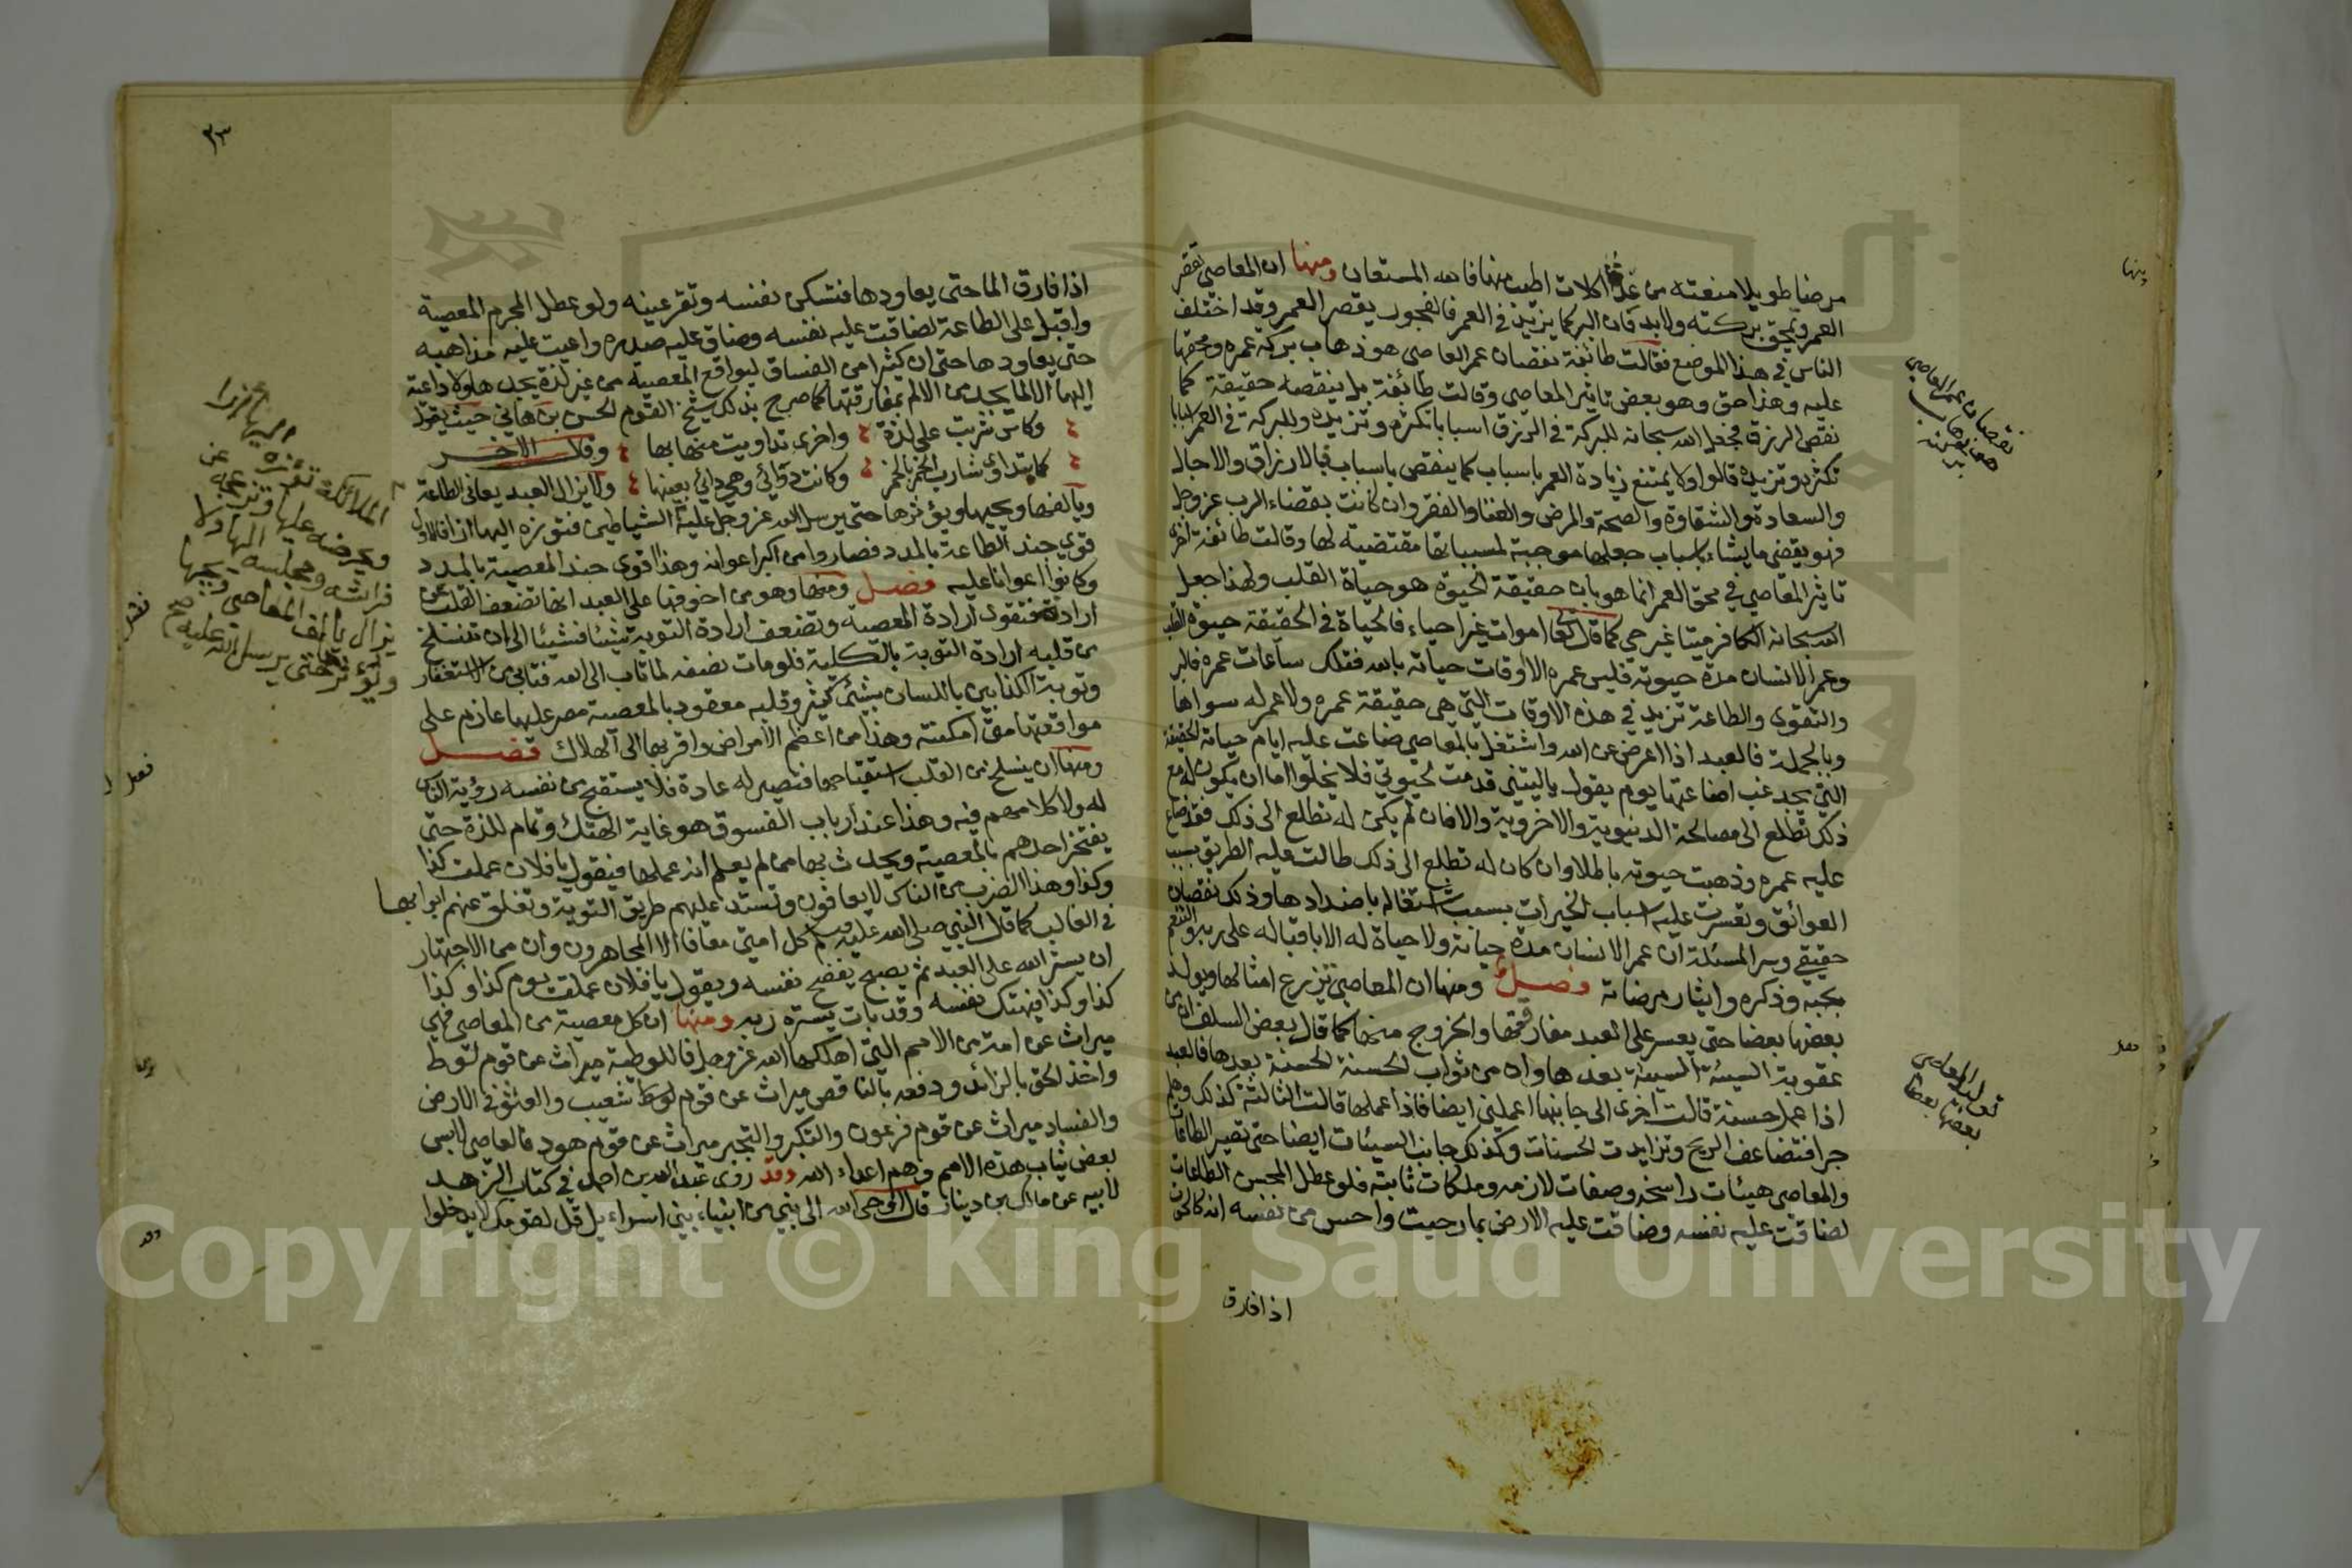 مرضا طويلا منعته من عدة اكلات اطيب منها فالله المستعان ومنها ان المعاصي تقصر
العمر وتمحق بركته ولا بد فان البر كما يزيد في العمر فالفجور يقصر العمر وقد اختلف
الناس في هذا الموضع فقالت طائفة نقصان عمر العاصي هو ذهاب بركة عمره ومحقها
عليه وهذا حق وهو بعض تاثير المعاصي وقالت طائفة بل ينقصه حقيقة كما
نقص الرزق فجعل الله سبحانه للبركة في الرزق اسبابا تكثره وتزيده وللبركة في العمر اسبابا
تكثره وتزيده قالوا ولا يمتنع زيادة العمر باسباب كما ينقص باسباب فبالارزاق والاجال
والسعادة والشقاوة والصحة والمرض والغنا والفقر وان كانت بقضاء الرب عز وجل
فهو يقضي ما يشاء باسباب جعلها موجبة لمسبباتها مقتضية لها وقالت طائفة اخرى
تاثير المعاصي في محق العمر انما هو بان حقيقة الحيوة هو حياة القلب ولهذا جعل
الله سبحانه الكافر ميتا غير حي كما قال تعا اموات غير احياء فالحياة في الحقيقة حيوة القلب
وعمر الانسان مدة حيوته فليس عمره الا اوقات حياته بالله فتلك ساعات عمره فالبر
والتقوى والطاعة تزيد في هذه الاوقات التي هي حقيقة عمره ولا عمر له سواها
وبالجملة فالعبد اذا اعرض عن الله واشتغل بالمعاصي ضاعت عليه ايام حياته الحقيقة
التي يجد غب اضاعتها يوم يقول ياليتني قدمت لحيوتي فلا يخلوا اما ان يكون له مع
ذلك تطلع الى مصالحة الدنيوية والاخروية والا فان لم يكن له تطلع الى ذلك فقد ضاع
عليه عمره وذهبت حيوته باطلا وان كان له تطلع الى ذلك طالت عليه الطريق بسبب
العوائق وتعسرت عليه اسباب الخيرات بسبب اشتغاله باضدادها وذلك نقصان
حقيقي وسر المسئلة ان عمر الانسان مدة حياته ولا حياة له الا باقباله على ربه والتنعم
بحبه وذكره وايثار مرضاته فصل ومنها ان المعاصي تزرع امثالها ويولد
بعضها بعضا حتى يعسر على العبد مفارقتها والخروج منها كما قال بعض السلف ان من
عقوبة السيئة السيئة بعدها وان من ثواب الحسنة الحسنة بعدها فالعبد
اذا عمل حسنة قالت اخرى الى جانبها اعملني ايضا فاذا عملها قالت الثالثة كذلك وهلم
جرا فتضاعف الربح وتزايدت الحسنات وكذلك جانب السيئات ايضا حتى تصير الطاعات
والمعاصي هيئات راسخة وصفات لازمه وملكات ثابتة فلو عطل المحسن الطاعات
لضاقت عليه نفسه وضاقت عليه الارض بما رحبت واحس من نفسه انه كالحوت
اذا فارق
نقصان عمر العاصي
هو ذهاب
بركته
توليد المعاصي
بعضها بعضا
منها
فصل
٣٣
اذا فارق الما حتى يعاودها فتسكن نفسه وتقر عينه ولو عطل المجرم المعصية
واقبل على الطاعة لضاقت عليه نفسه وضاق عليه صدره واعيت عليه مذاهبه
حتى يعاودها حتى ان كثيرا من الفساق ليواقع المعصية من غير لذة يجدها ولا داعية
اليها الا لما يجد من الالم بمفارقتها كما صرح بذلك شيخ القوم الحسن بن هاني حيث يقول
وكاس شربت على لذة واخرى تداويت منها بها وقال الاخر
كما يتداوى شارب الخمر بالخمر وكانت دوائي وهي دائي بعينها ولا يزال العبد يعاني الطاعة
ويألفها ويحبها ويؤثرها حتى يرسل الله عز وجل عليه الشياطين فتؤزه اليها ازا فالاول
قوي جند الطاعة بالمدد فصاروا من اكبر اعوانه وهذا قوى جند المعصية بالمدد
وكانوا اعوانا عليه فصل ومنها وهو من اخوفها على العبد انها تضعف القلب عن
ارادته فتقوى ارادة المعصية وتضعف ارادة التوبة شيئا فشيئا الى ان تنسلخ
من قلبه ارادة التوبة بالكلية فلو مات نصفه لما تاب الى الله فتابى من الاستغفار
وتوبة الكذابين باللسان بشيئ كثير وقلبه معقود بالمعصية مصر عليها عازم على
مواقعتها متى امكنته وهذا من اعظم الامراض واقربها الى الهلاك فصل
ومنها ان ينسلخ من القلب استقباحها فتصير له عادة فلا يستقبح من نفسه رؤية الناس
له ولا كلامهم فيه وهذا عند ارباب الفسوق هو غاية الهتك وتمام للذة حتى
يفتخر احدهم بالمعصية ويحدث بها من لم يعلم انه عملها فيقول يا فلان عملت كذا
وكذا وهذا الضرب من الناس لا يعافون وتستد عليهم طريق التوبة وتغلق عنهم ابوابها
في الغالب كما قال النبي صلى الله عليه وسلم كل امتي معافا الا المجاهرون وان من الاجهار
ان يستر الله على العبد ثم يصبح يفضح نفسه ويقول يا فلان عملت يوم كذا وكذا
كذا وكذا فيهتك نفسه وقد بات يستره ربه ومنها ان كل معصية من المعاصي فهي
ميراث عن امة من الامم التي اهلكها الله عز وجل فاللوطية ميراث عن قوم لوط
واخذ الحق بالزائد ودفعه بالناقص ميراث عن قوم شعيب والعلو في الارض
والفساد ميراث عن قوم فرعون والتكبر والتجبر ميراث عن قوم هود فالعاصي لابس
بعض ثياب هذه الامم وهم اعداء الله وقد روى عبد الله بن احمد في كتاب الزهد
لابيه عن مالك بن دينار قال اوحى الله الى نبي من انبياء بني اسراءيل قل لقومك لا يدخلوا
الملائكة تؤزه اليها ازا
ويحرضه عليها ويزعجه عن
فراشه ومجلسه اليها ولا
يزال يألف المعاصي ويحبها
ويؤثرها حتى يرسل الله عليه صح
فصل
وقد
Copyright © King Saud University